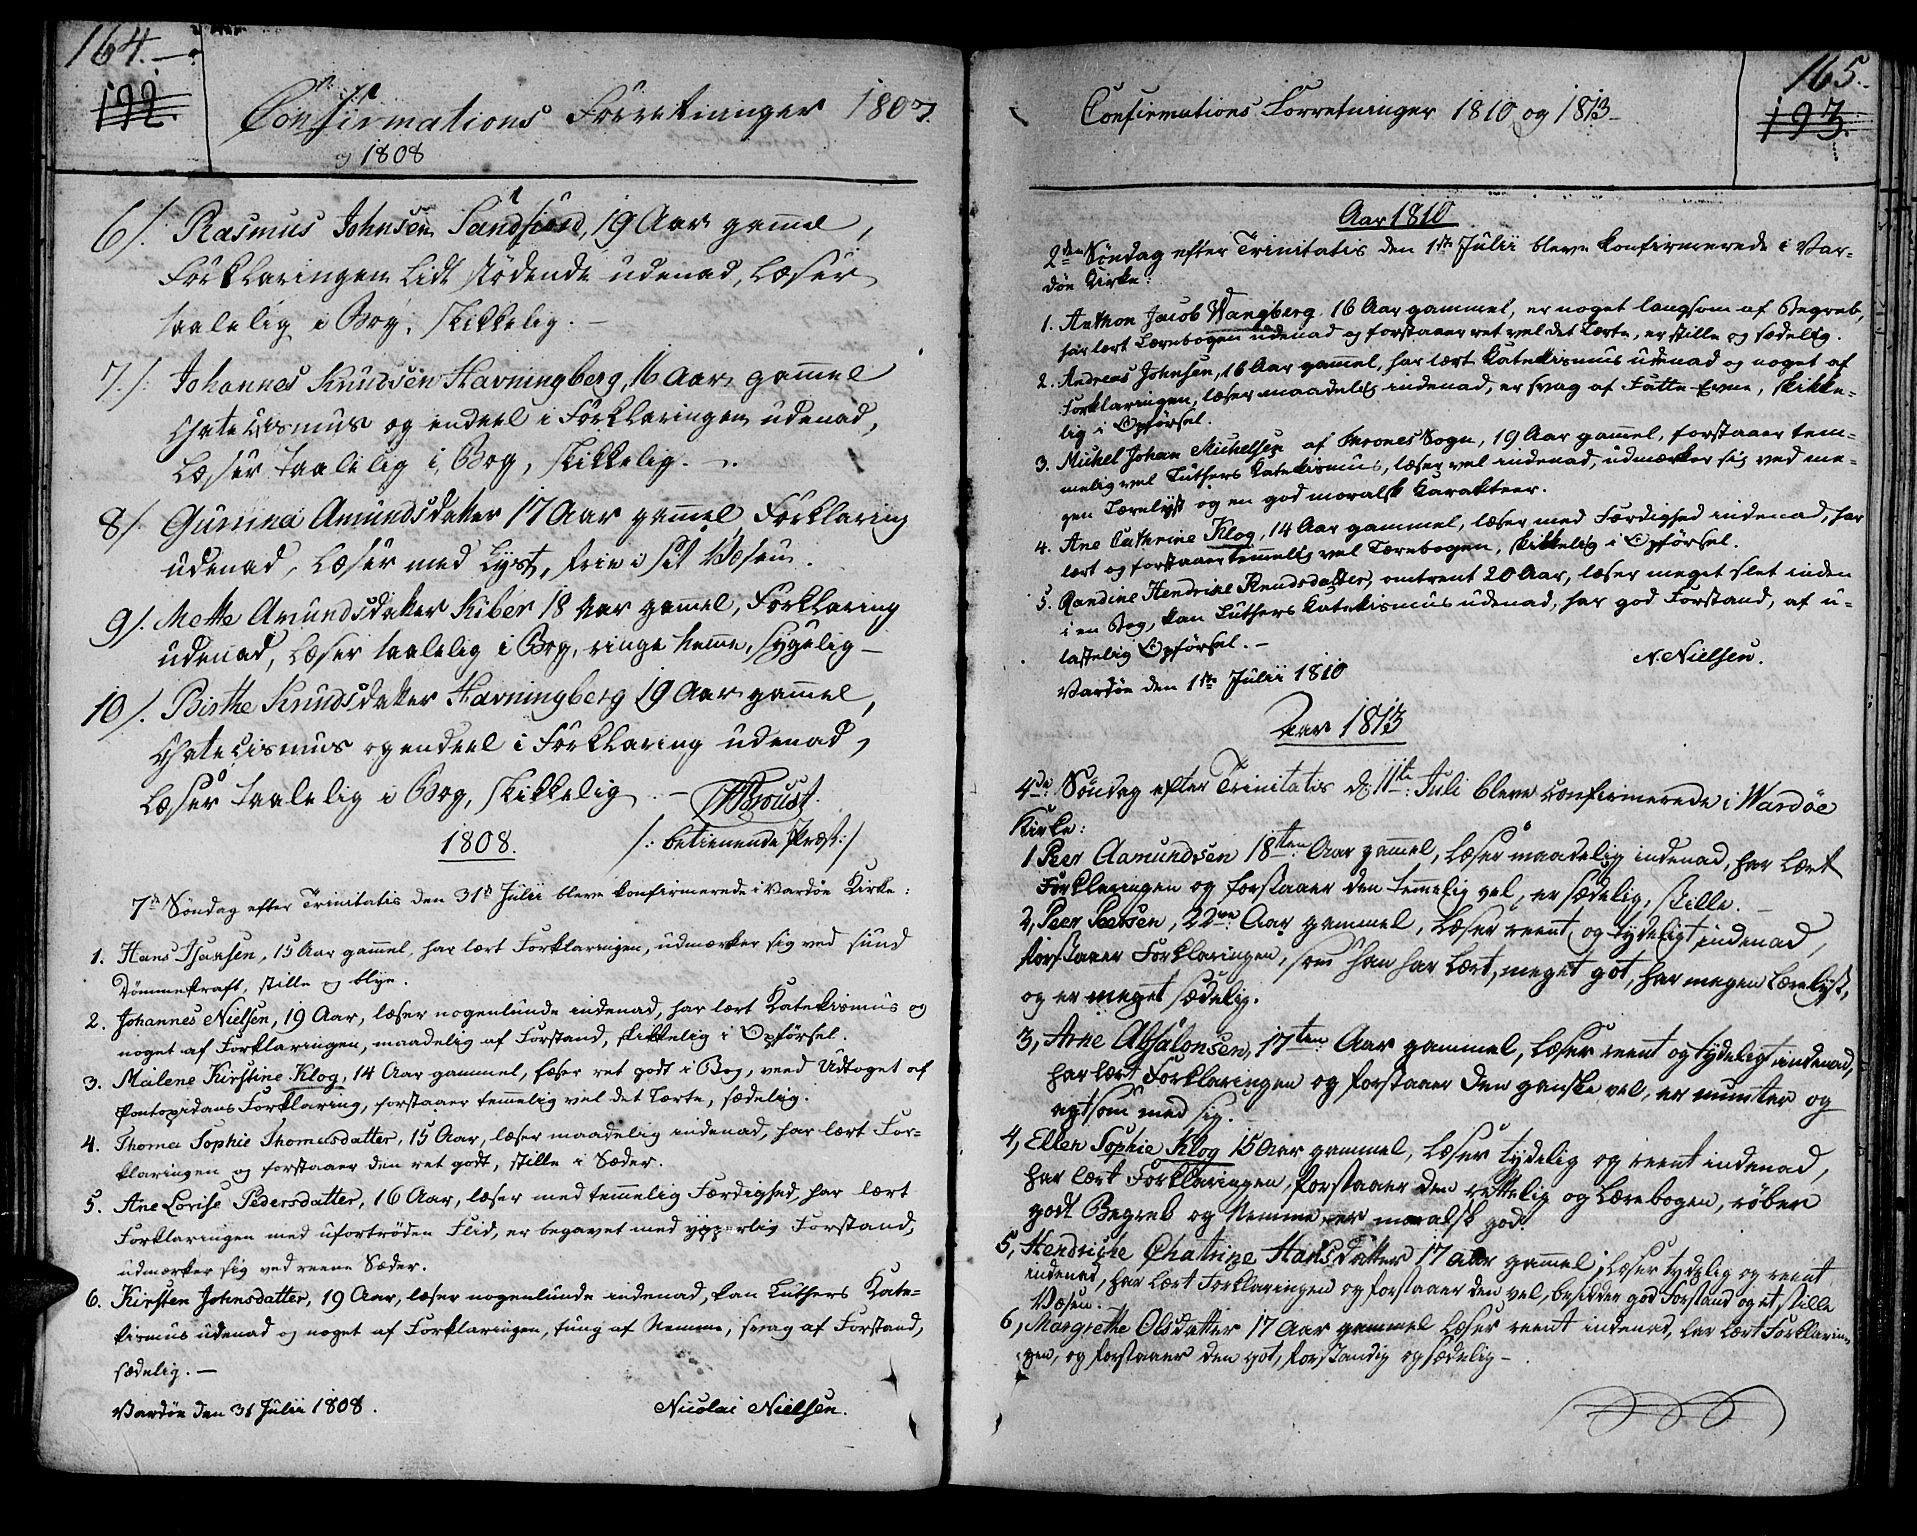 164.
192.
Confirmations Forretninger 1807.
og 1808
6/. Rasmus Johnsen Sandfiord, 19 Aar gam̄el,
Forklaringen Lidt stødende udenad, Læser
taalelig i Bog, skikkelig. —
7./. Johannes Knudsen Havningberg, 16 Aar gam̄el
Chatecismus og endeel i Forklaringen udenad,
Læser taalelig i Bog, skikkelig. —
8/. Gunina Amundsdatter 17 Aar gam̄el Forklaring
udenad, Læser med Lyst, frie i sit Væsen.
9/. Mette Amundsdatter Kiber 18 Aar gam̄el, Forklaring
udenad, Læser taalelig i Bog, ringe Nem̄e, sygelig —
10/. Birthe Knudsdatter Havningberg 19 Aar gam̄el,
Chatecismus og endeel i Forklaring udenad,
Læser taalelig i Bog, skikkelig. —
1808. /: betienende Præst :/
7de Søndag efter Trinitatis den 31te Julii bleve konfirmerede i Vardøe Kirke:
1. Hans Isaksen, 15 Aar gam̄el, har lært Forklaringen, udmærker sig ved sund
Dømmekraft, stille og blye.
2. Johannes Nielsen, 19 Aar, læser nogenlunde indenad, har lært Katekismus og
noget af Forklaringen, maadelig af Forstand, skikkelig i Opførsel.
3. Malene Kirstine Klog, 14 Aar gammel, læser ret godt i Bog, veed Udtoget af
Pontopidans Forklaring, forstaaer tem̄elig vel det Lærte, sædelig.
4. Thomea Sophie Thomesdatter, 15 Aar, læser maadelig indenad, har lært For=
klaringen og forstaaer den ret godt, stille i Sæder.
5. Ane Lovise Pedersdatter, 16 Aar, læser med tem̄elig Færdighed, har lært
Forklaringen med ufortrøden Flid, er begavet med ypperlig Forstand,
udmærker sig ved reene Sæder.
6. Kirsten Johnsdatter, 19 Aar, læser nogenlunde indenad, kan Luthers Kate=
kismus udenad og noget af Forklaringen, tung af Nemme, svag af Forstand,
sædelig. —
Vardøe den 31 Julii 1808. Nicolai Nielsen.
165.
193.
Confirmations Forretninger 1810 og 1813
Aar 1810
2den Søndag efter Trinitatis den 1ste Julii bleve konfirmerede i Var-
døe Kirke:
1. Anthon Jacob Wangberg 16 Aar gammel, er noget langsom af Begreb,
har lært Lærebogen udenad og forstaaer ret vel det Lærte, er stille og sædelig.
2. Andreas Johnsen, 16 Aar gam̄el, har lært Katekismus udenad og noget af
Forklaringen, læser maadelig indenad, er svag af Fatte-Evne, skikke-
lig i Opførsel.
3. Michel Johan Michelsen af Sogn, 19 Aar gam̄el, forstaaer tem=
melig vel Luthers Katekismus, læser vel indenad, udmærker sig ved me=
gen Lærelyst og en god moralsk Karakteer.
4. Ane Cathrine Klog, 14 Aar gammel, læser med Færdighed indenad, har
lært og forstaaer tem̄elig vel Lærebogen, skikkelig i Opførsel.
5. Randine Hendrine Knudsdatter, omtrent 20 Aar, læser meget slet inden
i en Bog, kan Luthers Katekismus udenad, har god Forstand, af u-
lastelig Opførsel. —
N. Nielsen.
Vardøe den 1ste Julii 1810
Aar 1813
4de Søndag efter Trinitatis d: 11te Juli bleve confirmerede i Wardøe
Kirke:
1 Peer Aamundsen 18ten Aar gam̄el, Læser maadelig indenad, har lært
Forklaringen og forstaaer den temmelig vel, er sædelig, stille.
2, Peer Peersen, 22ve Aar gammel, Læser reent og tydeligt indenad,
forstaaer Forklaringen, som han har lært, meget got, har megen Lærelyst,
og er meget sædelig.
3, Arne Absalonsen, 17ten Aar gammel, Læser reent og tydeligt indenad,
har lært Forklaringen og forstaaer den ganske vel, er munter og
agtsom med sig.
4, Ellen Sophie Klog 15 Aar gammel, Læser tydelig og reent indenad,
har lært Forklaringen, forstaaer den rettelig og Lærebogen, røber
godt Begreb og Nemme, er moralsk god.
5, Hendriche Chatrine Hansdatter 17 Aar gammel, Læser tydelig og reent
indenad, har lært Forklaringen og forstaaer den vel, besidder god Forstand og et stille
Væsen.
6, Margrethe Olsdatter 17 Aar gammel Læser reent indenad, har lært Forklarin=
gen, og forstaaer den got, forstandig og sædelig —